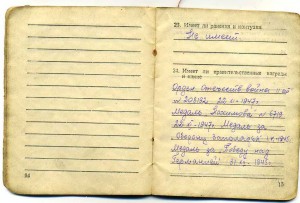 23. Имеет ли ранения и контузии
Не имеет.
24. Имеет ли правительственные награды
и какие
Орден Отечеств войны II ст
№ 208182 22.II-1947г.
Медаль Нахимова № 6719
1947г. Медаль за
Оборону Заполярья 1945
Медаль за Победу над
Германией 1945г.
15